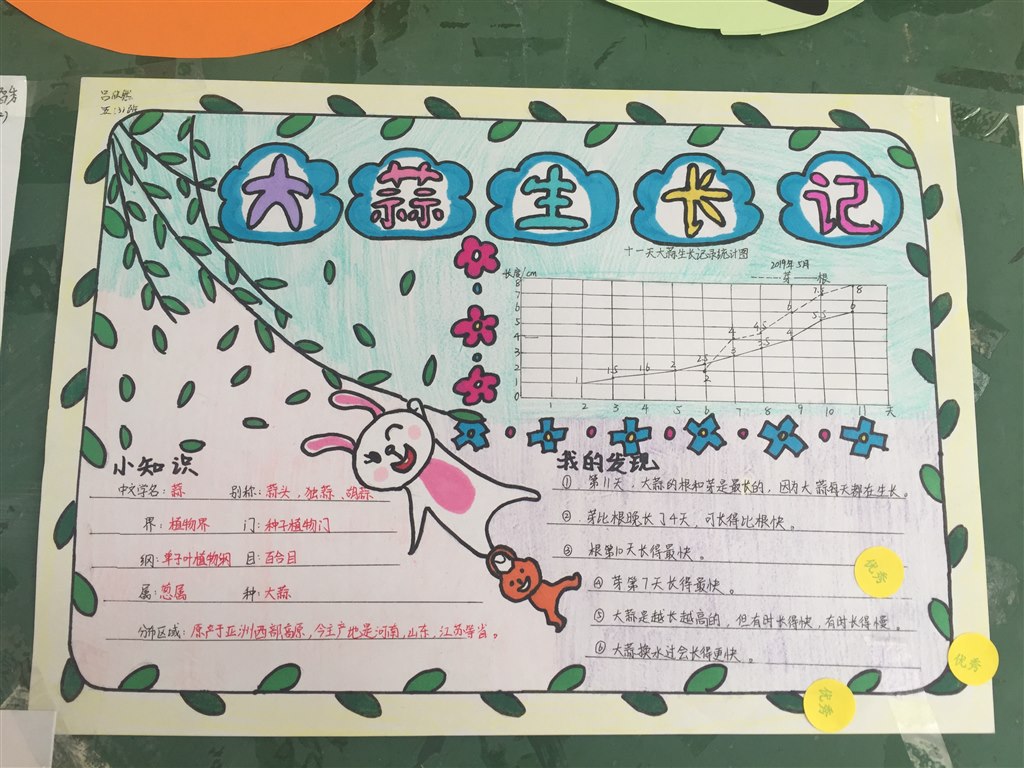 五(3)班
大蒜生长记
十一天大蒜生长记录统计图
2019年5月
长度/cm
芽 根
8
7
6
5
4
3
2
1
0
1.5 1.6 2 2.5 2 4 3 4.5 3.5 6 4 7.5 5.5 8 6
1 2 3 4 5 6 7 8 9 10 11 天
小知识
中文学名:蒜 别称:蒜头,独蒜,胡蒜
界:植物界 门:种子植物门
纲:单子叶植物纲 目:百合目
属:葱属 种:大蒜
分布区域:原产于亚洲西部高原,今主产地是河南,山东,江苏等省。
我的发现
① 第11天:大蒜的根和芽是最长的,因为大蒜每天都在生长。
② 芽比根晚长了4天,可长得比根快。
③ 根第10天长得最快。
④ 芽第7天长得最快。
⑤ 大蒜是越长越高的,但有时长得快,有时长得慢。
⑥ 大蒜换水过会长得更快。
优秀
优秀
优秀